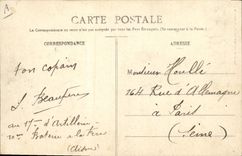 A.
CARTE POSTALE
La Correspondance au recto n'est pas acceptée par tous les Pays Étrangers. (Se renseigner à la Poste.)
CORRESPONDANCE
ADRESSE
ton copain
L. Beaupère
au 17e d'Artillerie
10e Batterie à la Fère
(Aisne)
Monsieur Houllé
164 Rue d'Allemagne
à Paris
(Seine)